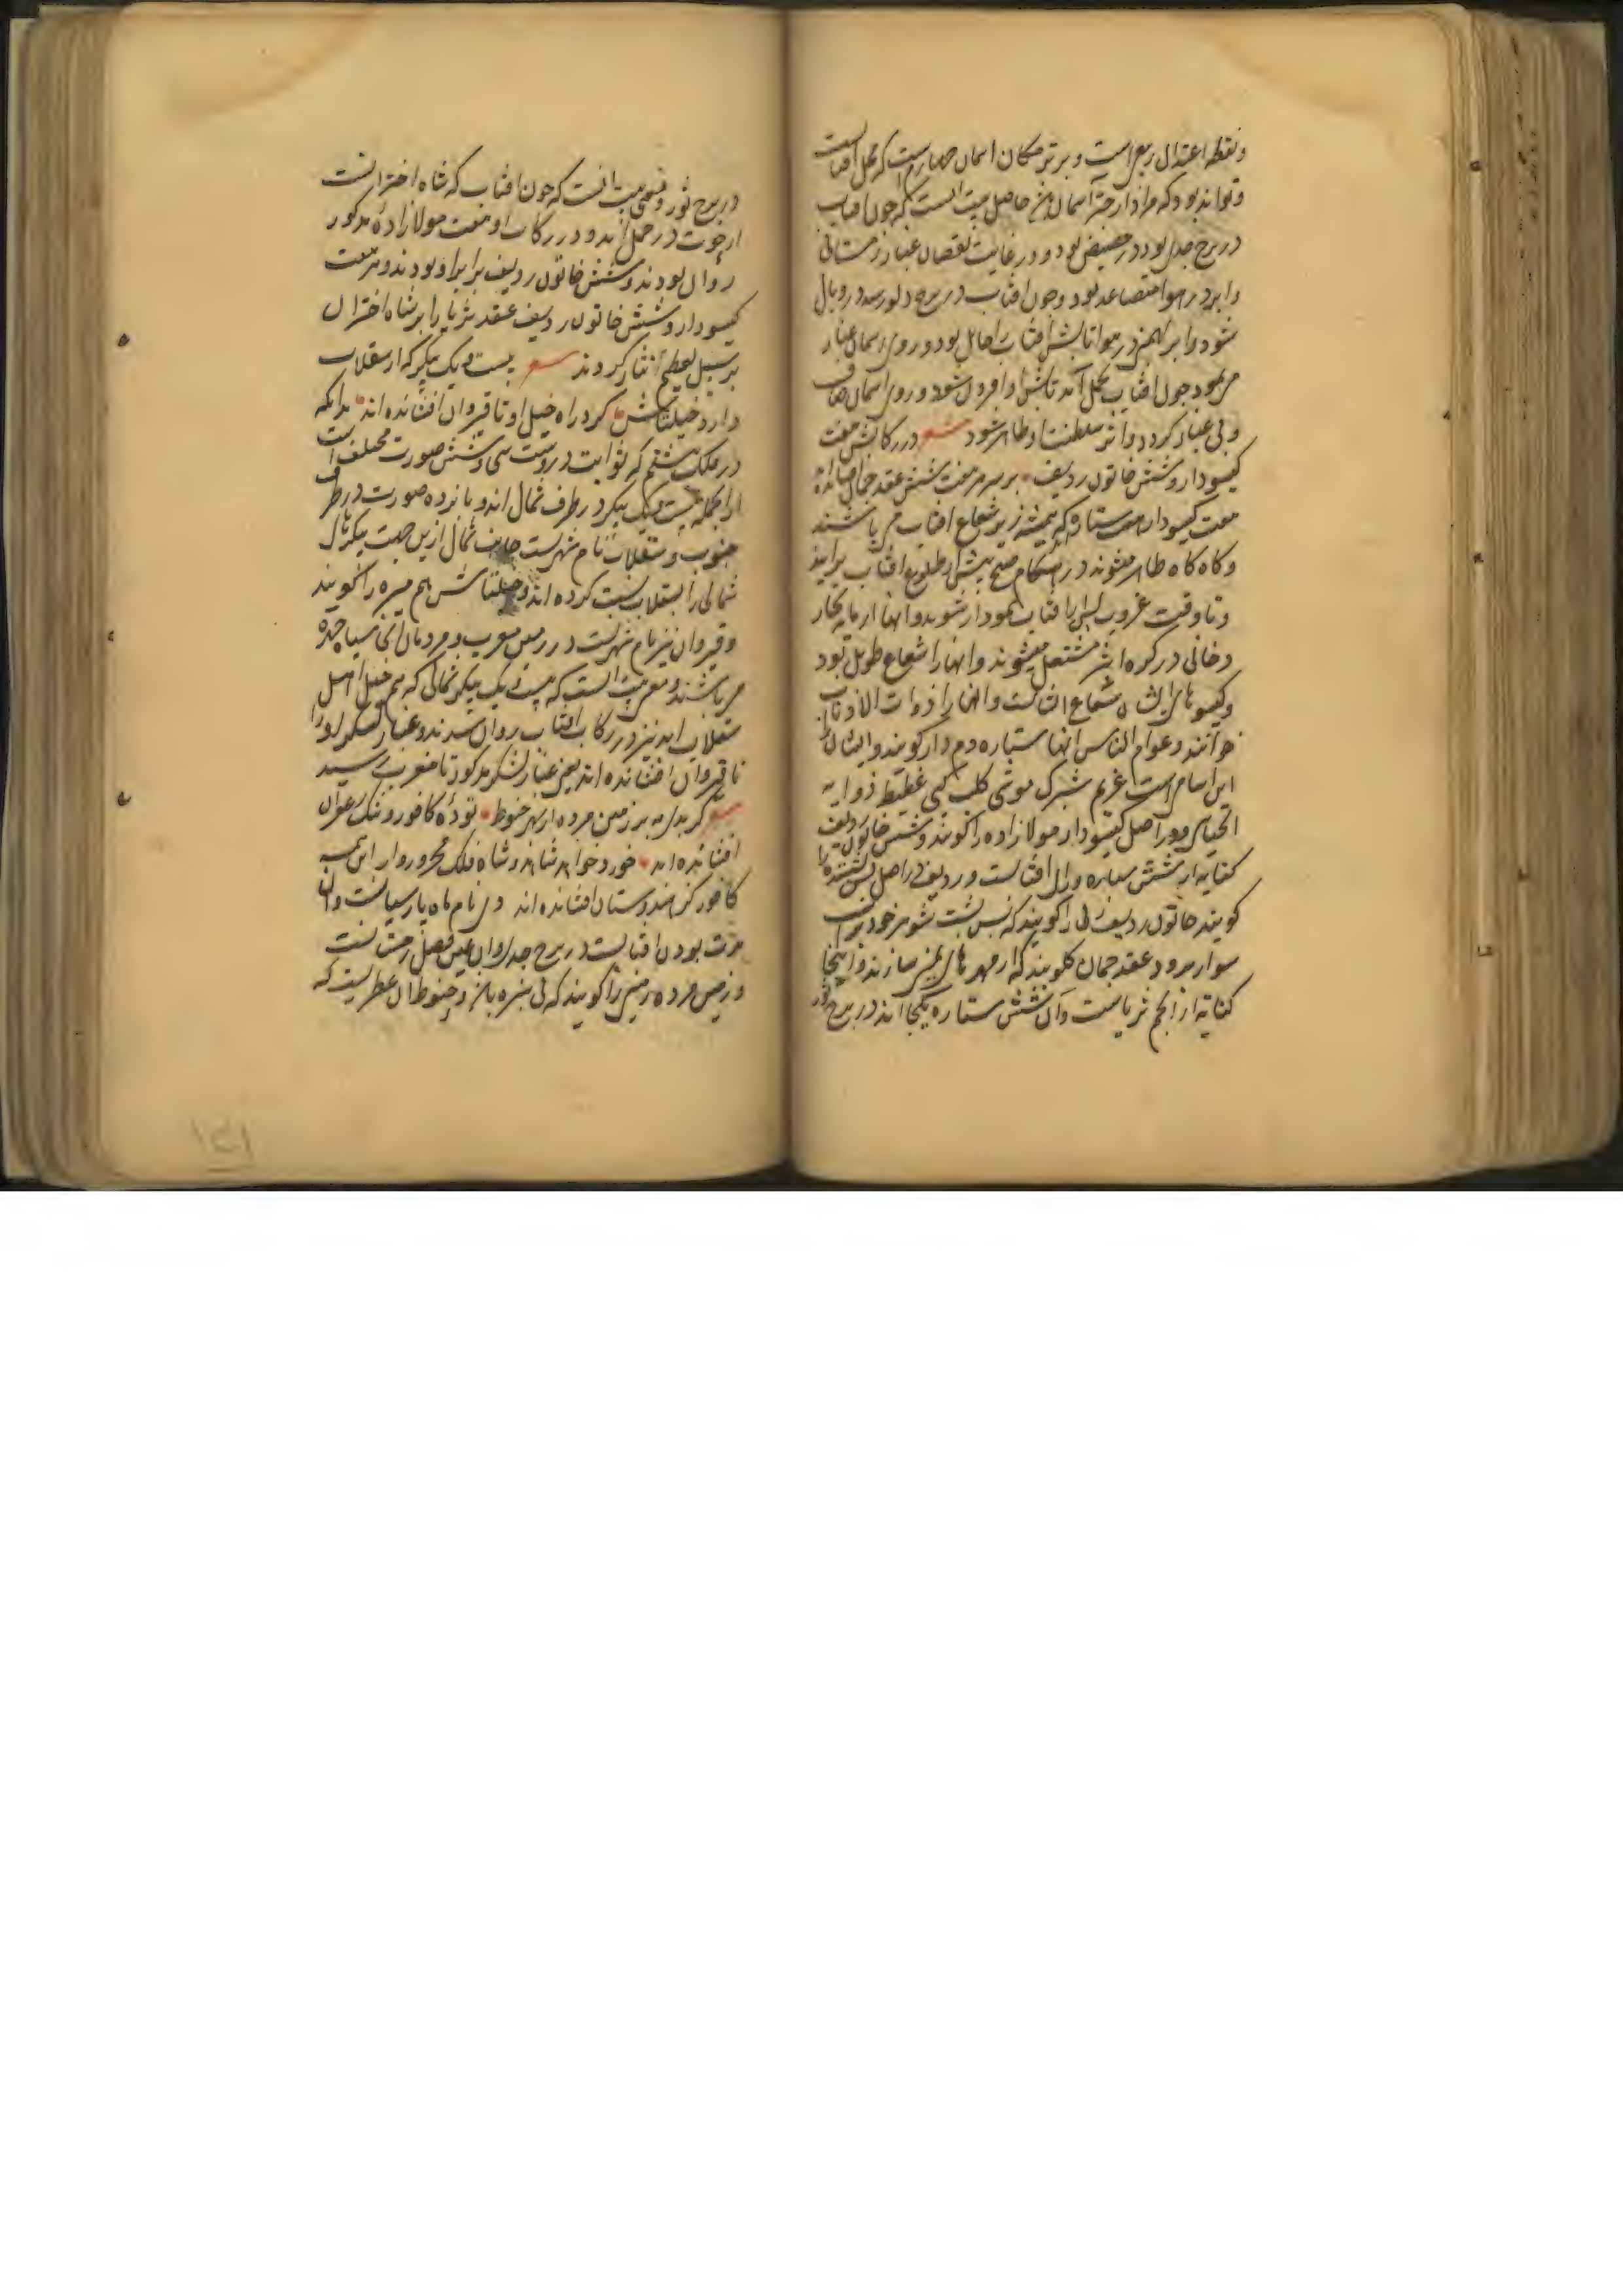 و نقطه اعتدال ربیعی است و برتر مکان اسمان چهارم است که محل افتاب است
و تواند بود که مراد از اسمان حاصل بیت انست که چون افتاب
در برج جدی بود در حضیض بود و در غایت نقصان غبار زمستانی
و ابر در هوا متصاعد بود و چون افتاب در برج دلو رسد در وبال
شود و ابر بهمن در هوا تابش افتاب را حایل بود و روی اسمان غبار
می نمود چون افتاب بحمل آمد تابش او افزون شود و روی اسمان صاف
و بی غبار گردد و اثر سلطنت او ظاهر شود شعر در رکابش هفت
گیسودار و شش خاتون ردیف بر سر هر هفت شش عقد جمان افشانده اند
هفت گیسودار هفت ستاره که همیشه زیر شعاع افتاب می باشند
و کاه کاه ظاهر میشوند در هنکام صبح پیش از طلوع افتاب برایند
و تا وقت غروب پس از افتاب نمودار شوند و انها از ماده بخار
دخانی در کوره اثیر مشتعل میشوند و انها را شعاع طویل بود
و گیسوهای ایشان شعاع انست و انها را ذوات الاذناب
خوانند و عوام الناس انها ستاره دم دار کویند و ایشان را
این اسامی است غریم شرک موتی کلب کمی غطیط ذوابه
الحیانی و در اصل گیسودار مولازاده را کویند و شش خاتون ردیف
کنایه از شش سیاره و افتابست و ردیف در اصل پس نشسته را
کویند خاتون ردیف زنی را کویند که پس پشت شوهر خود بر اسب
سوار رود و عقد جمان کلوبند که از مهرهای سازند و اینجا
کنایه از انجم ثریاست و آن شش ستاره یکجا اند در برج ثور
در برج ثور و معنی بیت انست که چون افتاب که شاه اختران است
از حوت در حمل آمد و در رکاب او هفت مولازاده مذکور
روان بودند و شش خاتون ردیف برابر او بودند و هر هفت
گیسودار و شش خاتون ردیف عقد ثریا را بر شاه اختران
بر سبیل تعظیم نثار کردند شعر بیست و یک پیکر که از سقلاب
دارد خیلتاش گرد راه خیل او تا قیروان افشانده اند بدانکه
در فلک هشتم که ثوابت دروست سی و شش صورت مختلف است
از انجمله بیست و یک پیکر در طرف شمال اند و پانزده صورت در طرف
جنوب و سقلاب نام شهریست جانب شمال ازین جهت پیکر
شمالی را بسقلاب نسبت کرده اند و خیلتاش هم را کویند
و قیروان نیز نام شهریست در زمین مغرب و مردمان آن سیاه چرده
می باشند و معنی بیت انست که بیست و یک پیکر شمالی که هم خیل اهل
سقلاب اند نیز در رکاب افتاب روان شدند و غبار لشکر او را
تا قیروان افشانده اند یعنی غبار لشکر مذکور تا مغرب رسید
شعر بر زمین مرده از بهر حنوط توده کافور و تنگ زعفران
افشانده اند شاه فلک محرور وار
کافور کز هندوستان افشانده اند دی نام ماه پارسیانست و آن
مدت بودن افتابست در برج جدی و آن عین فصل زمستانست
و زمین مرده زمینی را کویند که بی سبزه باشد و حنوط آن عطریست که
۱۵۱